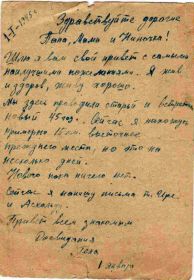 1-I-1945г.
Здравствуйте дорогие
Папа, Мама и Ниночка!
Шлю я вам свой привет с самыми
наилучшими пожеланиями. Я жив
и здоров, живу хорошо.
Мы здесь проводили старый и встрет
новый 45 год. Сейчас я нахожусь
примерно 15 км. восточнее
прежнего места, но это на
несколько дней.
Нового пока ничего нет.
Сейчас я напишу письма т. Шуре
и
Привет всем знакомым
До свидания
1 января